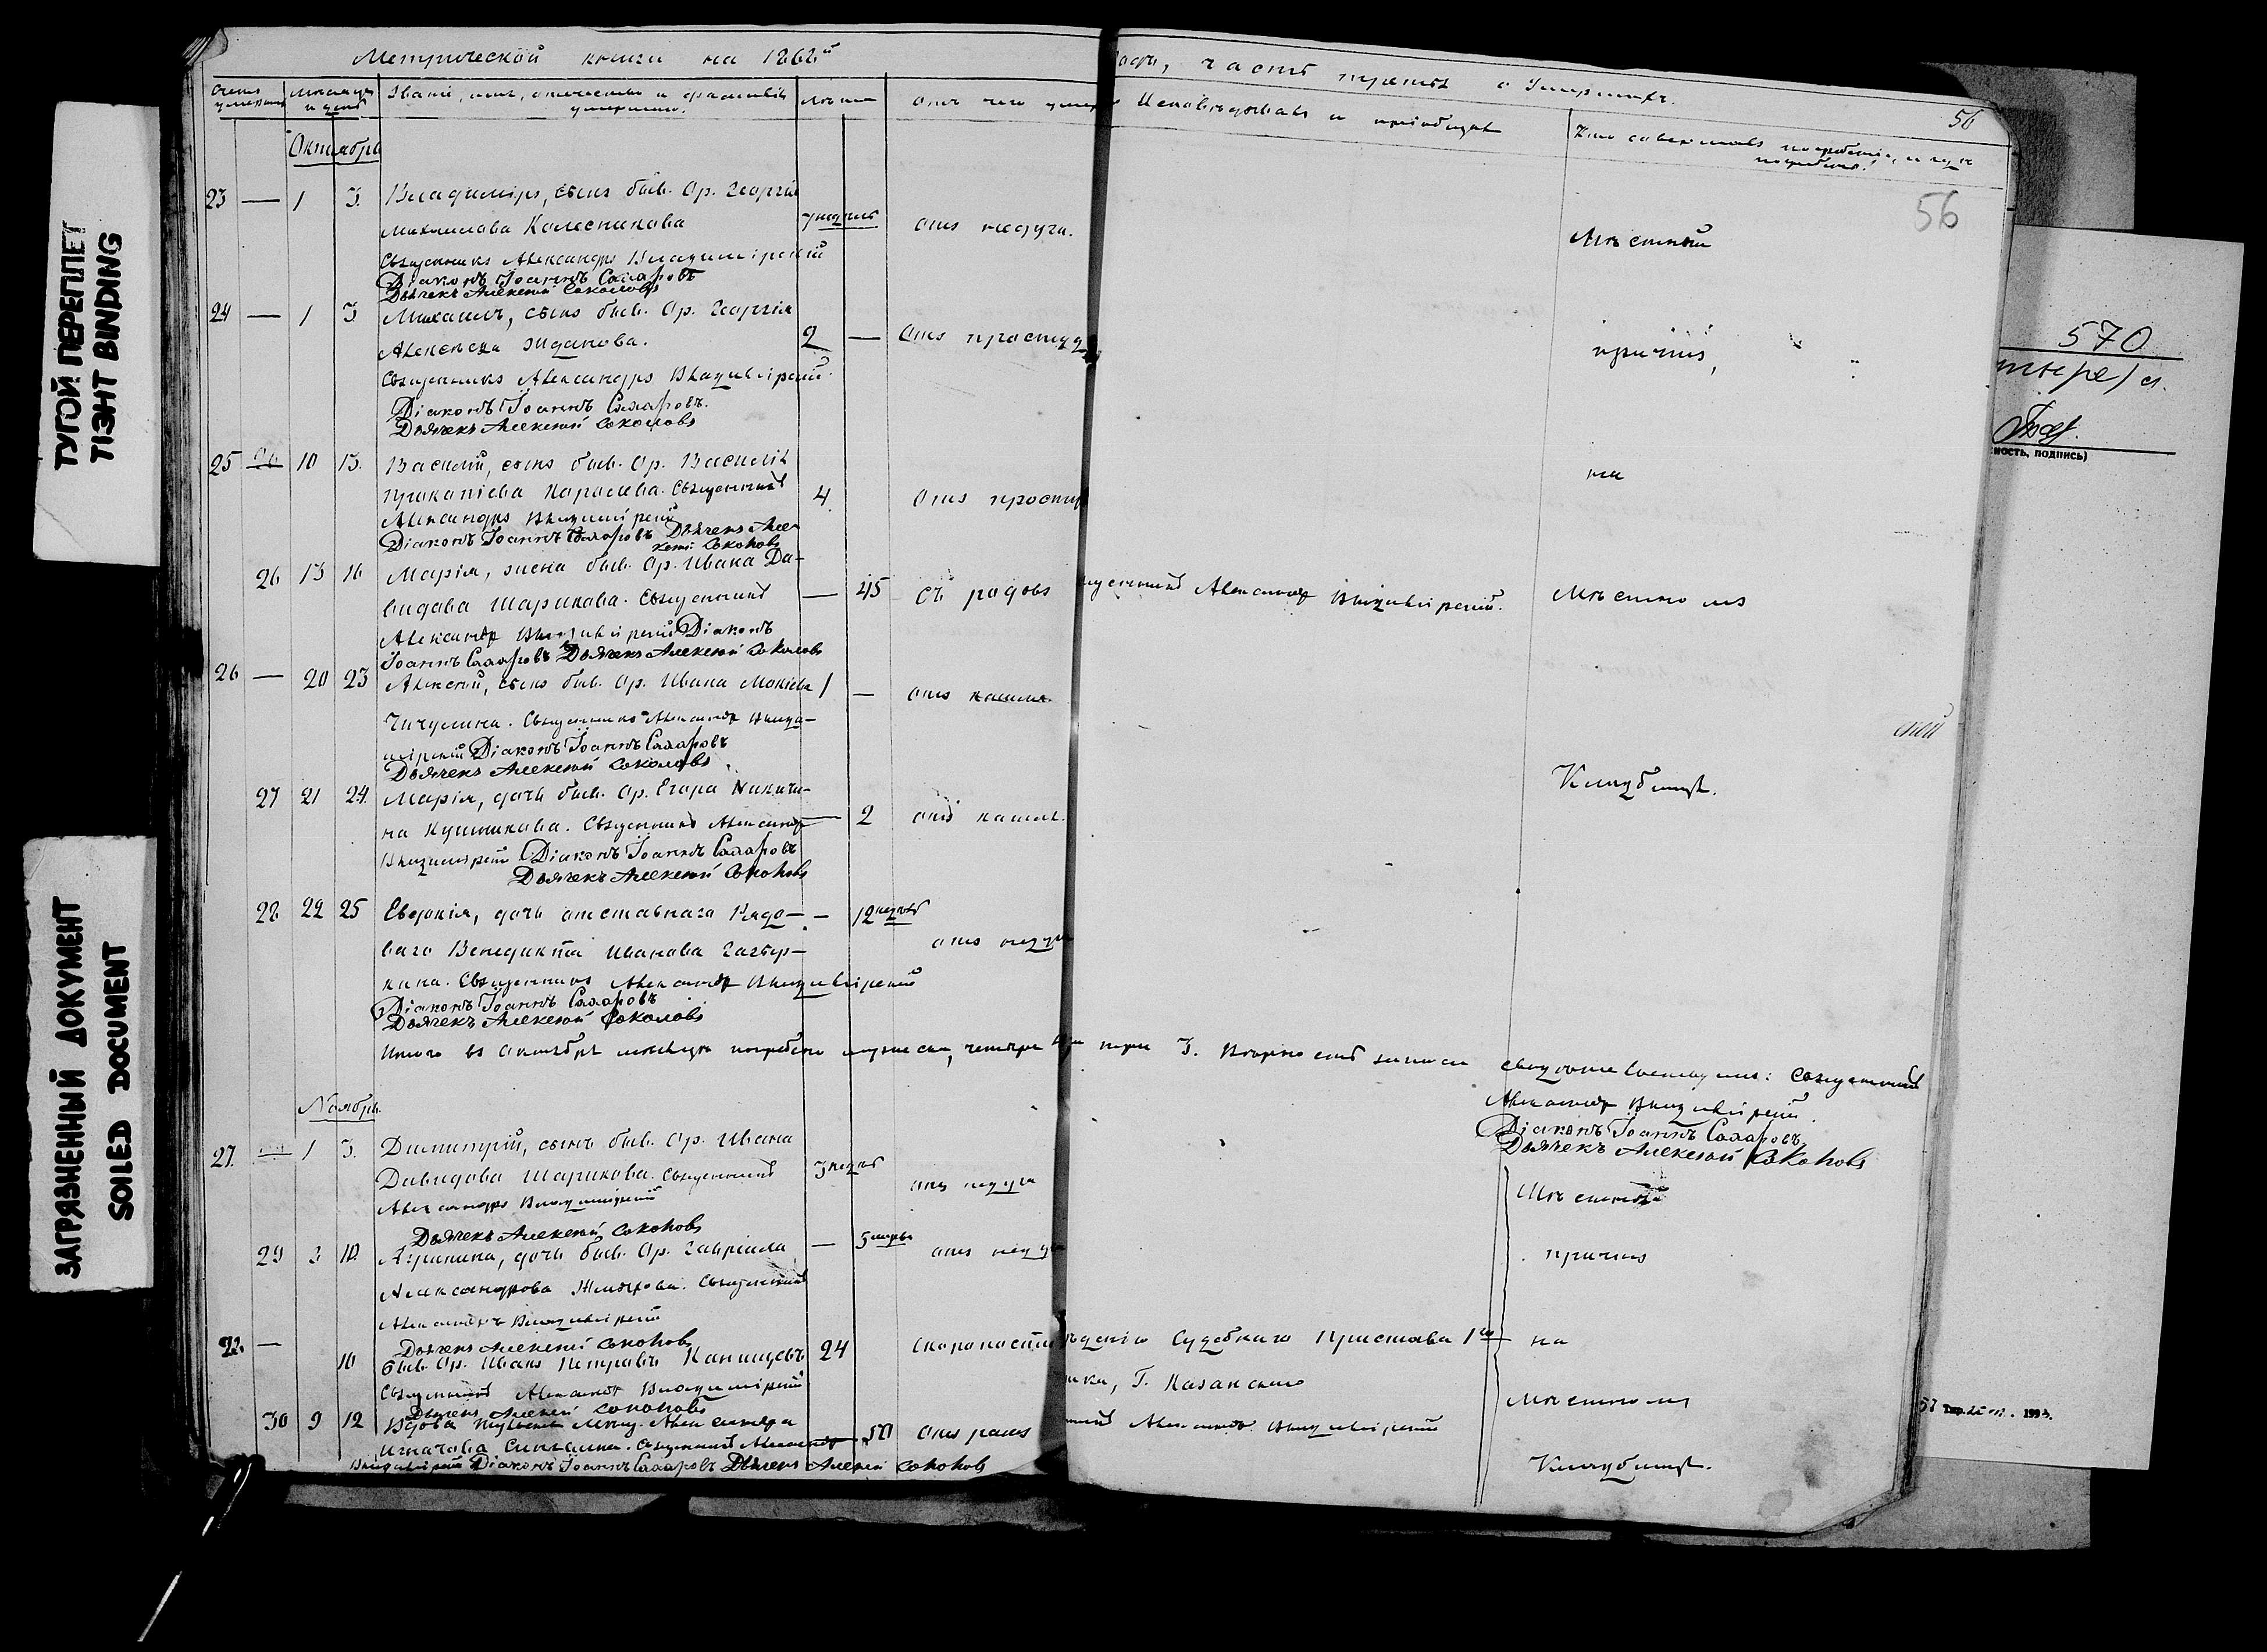 ТУГОЙ ПЕРЕПЛЕТ
TIЭHT BINDING
ЗАГРЯЗНЕННЫЙ ДОКУМЕНТ
SOILED DOCUMENT
Метрической книги на 1868й
часть третья о Умершихъ.
56
Званіе, имя, отчество и фамилія
умершаго.
Лѣта
Исповѣдывалъ и пріобщалъ
Кто совершалъ погребеніе, и гдѣ
погребены?
56
Октябрь
23 — 1 3. Владиміръ, сынъ быв. Ор. Георгія
Михайлова Колесникова 7 недѣль отъ недуга. Мѣстный
Священникъ Александръ Владимірскій
Діаконъ Іоаннъ Сахаровъ
Дьячекъ Алексей Соколовъ
24 — 1 3 Михаилъ, сынъ быв. Ор. Георгія
Алексѣева Жданова. 2 — отъ простуды причтъ,
Священникъ Александръ Владимірскій.
Діаконъ Іоаннъ Сахаровъ.
Дьячекъ Алексей Соколовъ
25 10 13. Василій, сынъ быв. Ор. Василія
Прокопіева Королева. Священникъ 4 отъ простуд на
Александръ Владимірскій
Діаконъ Іоаннъ Сахаровъ Дьячекъ Алек
сей Соколовъ
26 13 16 Марія, жена быв. Ор. Ивана Да-
видова Шарикова. Священникъ — 45 съ родовъ Александръ Владимірскій. Мѣстномъ
Александръ Владимірскій Діаконъ
Іоаннъ Сахаровъ Дьячекъ Алексей Соколовъ
26 — 20 23 Алексѣй, сынъ быв. Ор. Ивана Мокіева 1 — отъ кашля.
Чичулина. Священникъ Александръ Влади-
мірскій Діаконъ Іоаннъ Сахаровъ
Дьячекъ Алексей Соколовъ.
27 21 24. Марія, дочь быв. Ор. Егора Никити-
на Кушникова. Священникъ Александръ — 2 отъ кашл. Кладбищѣ.
Владимірскій Діаконъ Іоаннъ Сахаровъ
Дьячекъ Алексей Соколовъ
28 22 25 Евдокія, дочь отставнаго Рядо- — 12 недѣль
ваго Венедикта Иванова отъ недуга
Священникъ Александръ Владимірскій
Діаконъ Іоаннъ Сахаровъ
Дьячекъ Алексей Соколовъ
Итого въ октябрѣ мѣсяцѣ погребено мужеска, четыре три 3. Вѣрность записи свидѣтельствуемъ: Священникъ
Александръ Владимірскій.
Діаконъ Іоаннъ Сахаровъ
Дьячекъ Алексей Соколовъ
Ноябрь.
27. 1 3. Димитрій, сынъ быв. Ор. Ивана
Давидова Шарикова. Священникъ 3 недѣл отъ недуга Мѣстный
Александръ Владимірскій
Дьячекъ Алексей Соколовъ
29 3 10. Агрипина, дочь быв. Ор. Гавріила — отъ недуга причтъ
Александрова Священникъ
Александръ Владимірскій
Дьячекъ Алексей Соколовъ
— 10 быв. Ор. Иванъ Петровъ 24 Скоропости Судебнаго Пристава 1го на
Священникъ Александръ Владимірскій Г. Казанскаго
Дьячекъ Алексей Соколовъ Мѣстномъ
30 9 12 Вдова — 50 Александръ Владимірскій
Игнатова Священникъ Александръ
Владимірскій Діаконъ Іоаннъ Сахаровъ Дьячекъ Алексей Соколовъ Кладбищѣ.
570
ность, подпись)